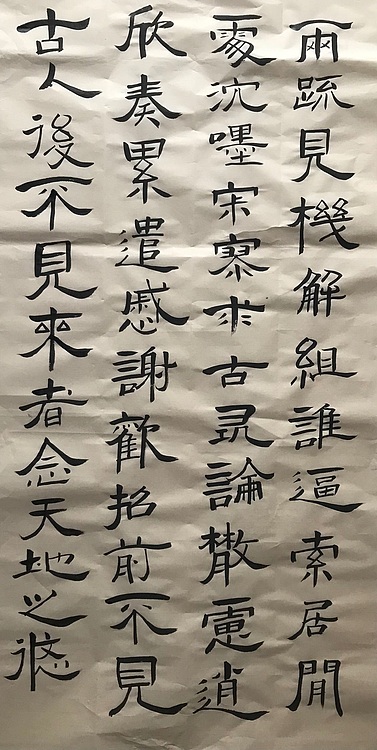 兩疏見機解組誰逼索居閒
處沉嘿寂寥求古尋論散慮逍
欣奏累遣慼謝歡招前不見
古人後不見來者念天地之悠